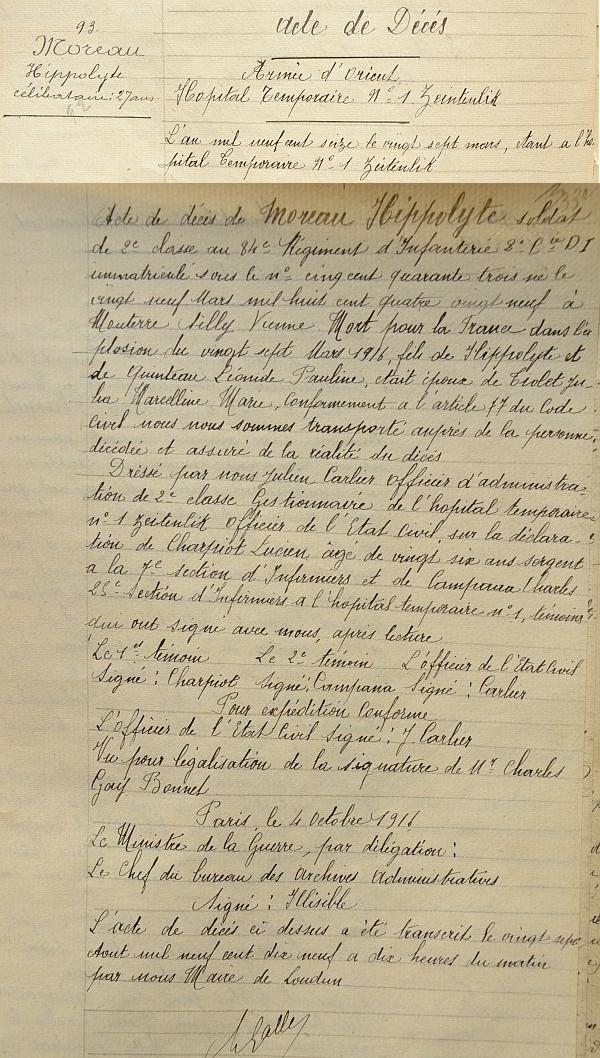 acte de Décés
93.
Moreau
Hippolyte
célibataire; 27 ans
Armée d'Orient
Hopital Temporaire N° 1 Zeintenlik
L'an mil neuf cent seize le vingt sept mars, étant a l'ho
pital Temporaire N° 1 Zeitenlik
Acte de décès de Moreau Hippolyte soldat
de 2e classe au 84e Régiment d'Infanterie 2e Cie D I
immatriculé sous le n° cinq cent quarante trois né le
vingt neuf Mars mil huit cent quatre vingt neuf à
Mouterre Silly Vienne Mort pour la France dans l'ex
plosion du vingt sept Mars 1916, fils de Hippolyte et
de Quinteau Léonide Pauline, était époux de Triolet Ju-
lia Marcelline Marie, Conformement a l'article 77 du Code
Civil nous nous sommes transporté auprès de la personne
décédée et assuré de la réalité du décès
Dréssé par nous Julien Carlier Officier d'administra-
tion de 2e classe Gestionnaire de l'hopital temporaire
n° 1 Zeitenlik Officier de l'Etat Civil, sur la déclara-
tion de Charpiot Lucien âgé de vingt six ans sergent
a la 7e section d'Infirmiers et de Campana Charles
25e Section d'Infirmiers a l'hopital temporaire n° 1, témoins
qui ont signé avec nous, après lecture
Le 1er témoin Le 2e témoin L'officier de l'Etat Civil
Signé: Charpiot Signé: Campana Signé: Carlier
Pour expédition Conforme
L'officier de l'Etat Civil Signé: J Carlier
Vu pour légalisation de la signature de Mr Charles
Bonnet
Paris, le 4 Octobre 1916
Le Ministre de la Guerre, par délégation:
Le Chef du bureau des Archives Administratives
Signé: Illisible
L'acte de décès ci dessus a été transcrit le vingt sept
Aout mil neuf cent dix neuf a dix heures du matin
par nous Maire de Loudun